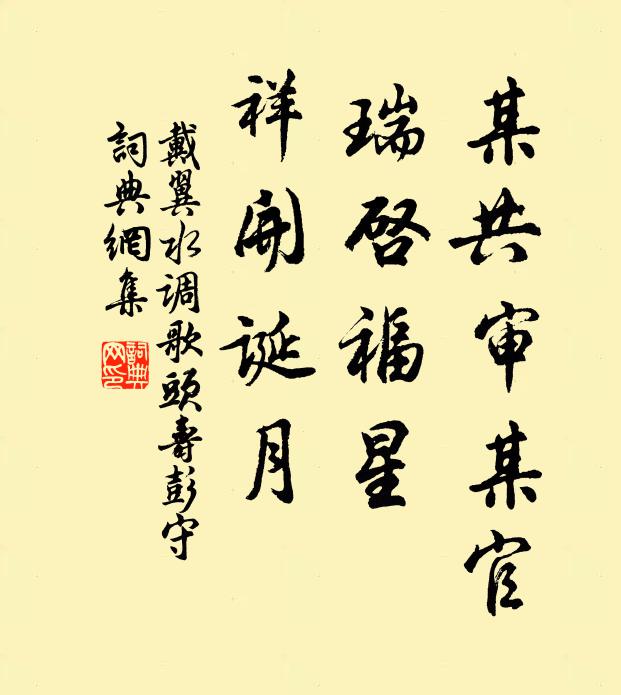 某共审某官
瑞启福星
祥开诞月
戴翼水调歌头寿彭守
詞典網集
詞典网印